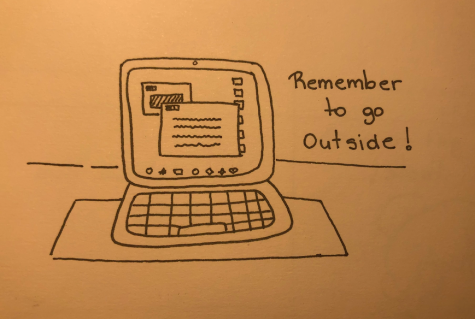 Remember
to go
Outside!